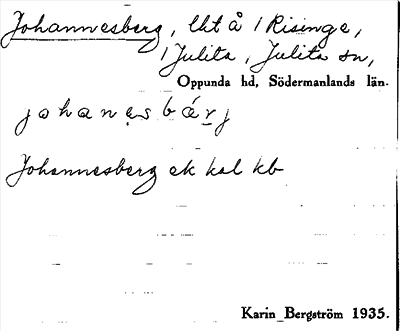 Johannesberg, lht å 1 Risinge,
1 Julita, Julita sn,
Oppunda hd, Södermanlands län.
johanesbærj
Johannesberg ek kal kb
Karin Bergström 1935.